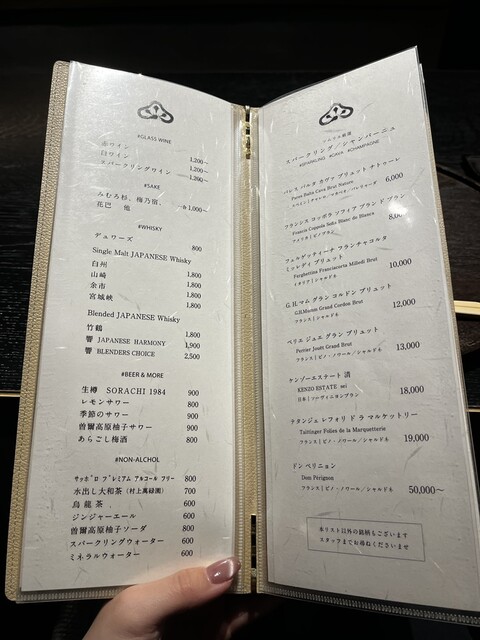 #GLASS WINE
赤ワイン 1,200～
白ワイン 1,200～
スパークリングワイン 1,200～
#SAKE
みむろ杉、梅乃宿、
花巴 他 一合 1,000～
#WHISKY
デュワーズ 800
Single Malt JAPANESE Whisky
白州 1,800
山崎 1,800
余市 1,800
宮城峡 1,800
Blended JAPANESE Whisky
竹鶴 1,800
響 JAPANESE HARMONY 1,900
響 BLENDERS CHOICE 2,500
#BEER & MORE
生樽 SORACHI 1984 900
レモンサワー 800
季節のサワー 900
曽爾高原柚子サワー 900
あらごし梅酒 800
#NON-ALCHOL
サッポロ プレミアム アルコール フリー 800
水出し大和茶（村上萬緑園） 700
烏龍茶 600
ジンジャーエール 600
曽爾高原柚子ソーダ 800
スパークリングウォーター 600
ミネラルウォーター 600
ソムリエ厳選
スパークリング／シャンパーニュ
#SPARKLING #CAVA #CHAMPAGNE
パレス バルタ カヴァ ブリュット ナトゥーレ
Parés Balta Cava Brut Nature 6,000
スペイン | チャレッロ・マカベオ・パレリャーダ
フランシス コッポラ ソフィア ブラン ド ブラン
Francis Coppola Sofia Blanc de Blancs 8,000
アメリカ | ピノブラン
フェルゲッティーナ フランチャコルタ
ミッレディ ブリュット
Ferghettina Franciacorta Milledi Brut 10,000
イタリア | シャルドネ
G.H.マム グラン コルドン ブリュット
G.H.Mumm Grand Cordon Brut 12,000
フランス | シャルドネ
ペリエ ジュエ グラン ブリュット
Perrier Jouët Grand Brut 13,000
フランス | ピノ・ノワール／シャルドネ
ケンゾーエステート 清
KENZO ESTATE sei 18,000
日本 | ソーヴィニヨンブラン
テタンジェ レフォリ ド ラ マルケットリー
Taittinger Folies de la Marquetterie 19,000
フランス | ピノ・ノワール／シャルドネ
ドン ペリニョン
Dom Pérignon
フランス | ピノ・ノワール／シャルドネ 50,000～
本リスト以外の銘柄もございます
スタッフまでお尋ねくださいませ